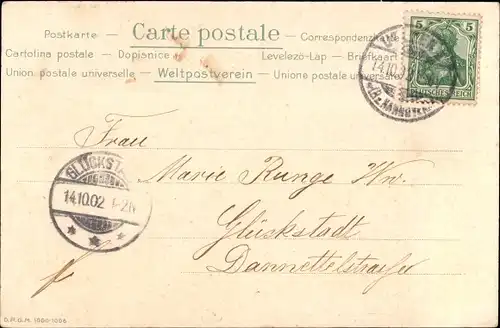 Postkarte — Carte postale — Correspondenzkarte
Cartolina postale — Dopisnice — Levelező-Lap — Briefkaart
Union postale universelle — Weltpostverein — Unione postale universale
5 5
DEUTSCHES REICH
14.10.02
HANNOVER
Frau
Marie Runge Ww.
Glückstadt
Dannettelstraße
GLÜCKSTADT
14.10.02. 1-2N
D.R.G.M. 1880-1086